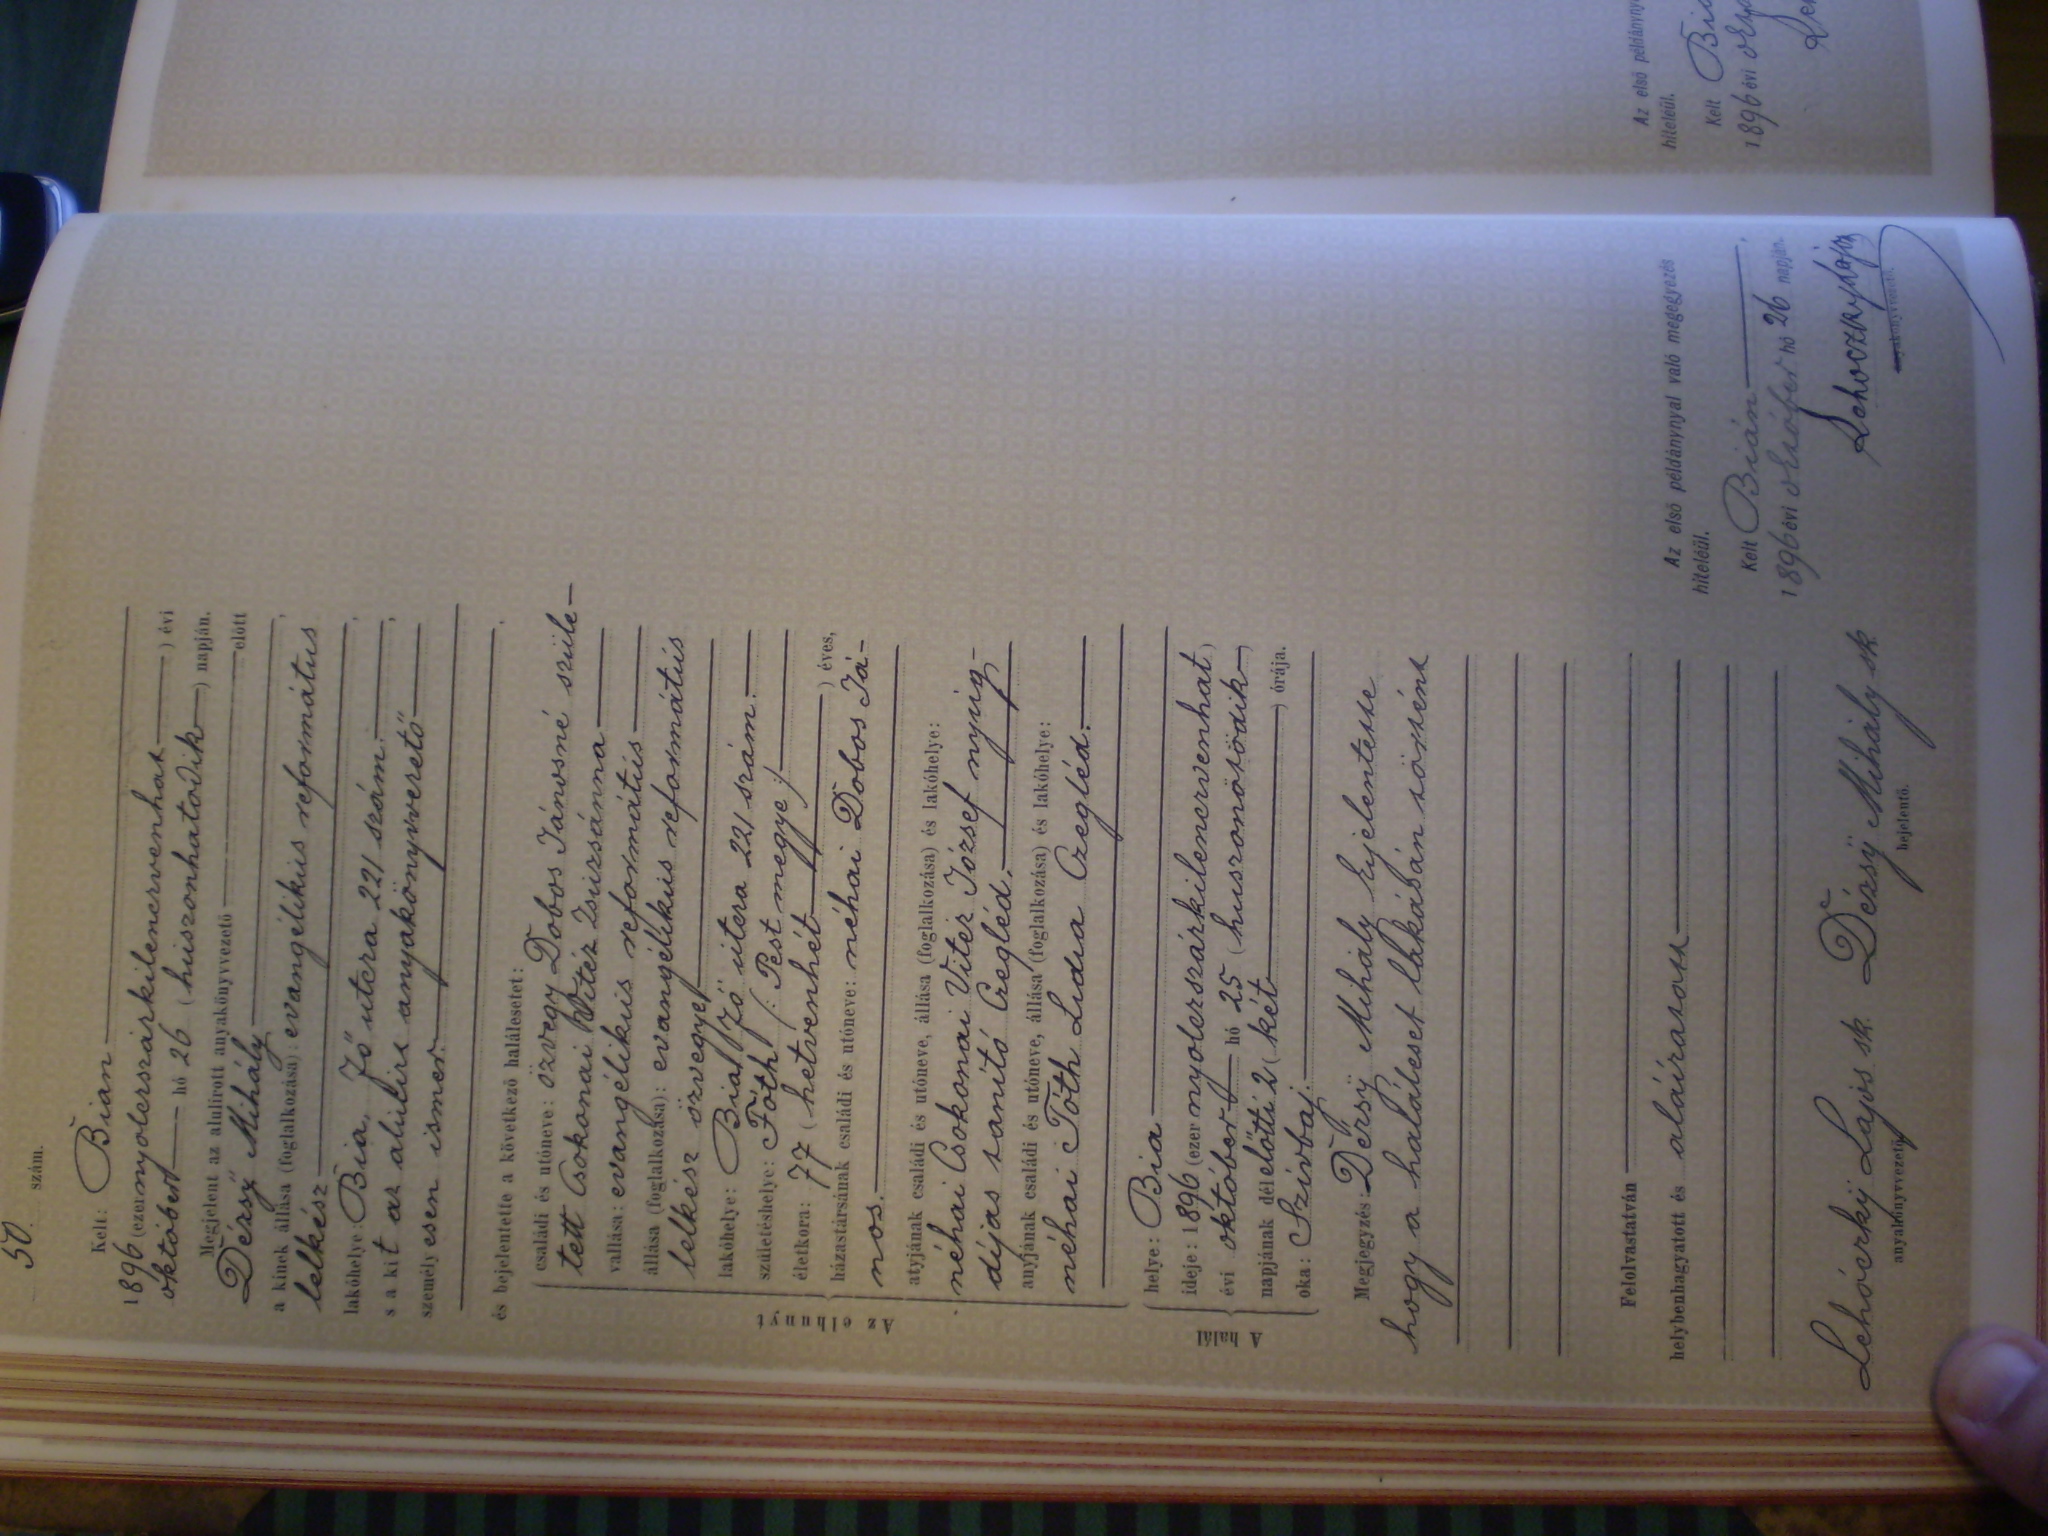 50. szám.
Kelt: Bian
1896 (ezernyolczszázkilenczvenhat) évi
október hó 26 (huszonhatodik) napján.
Megjelent az alulirott anyakönyvvezető előtt
Dézsÿ Mihály
a kinek állása (foglalkozása): evangélikus református
lelkész,
lakóhelye: Bia, Fő utcza 221 szám.,
s a kit az alulirt anyakönyvvezető,
személyesen ismer
és bejelentette a következő halálesetet:
Az elhunyt
családi és utóneve: özvegy Dobos Jánosné szüle-
tett Csokonai Vitéz Zsuzsánna
vallása: evangélikus református
állása (foglalkozása): evangélikus református
lelkész özvegye
lakóhelye: Bia, Fő utcza 221 szám.
születéshelye: Fóth /: Pest megye :/
életkora: 77 (hetvenhét) éves,
házastársának családi és utóneve: néhai Dobos Já-
nos.
atyjának családi és utóneve, állása (foglalkozása) és lakóhelye:
néhai Csokonai Vitéz József nyug-
díjas tanító Czegléd.
anyjának családi és utóneve, állása (foglalkozása) és lakóhelye:
néhai Tóth Lidia Czegléd.
A halál
helye: Bia
ideje: 1896 (ezernyolczszázkilenczvenhat)
évi október hó 25 (huszonötödik)
napjának dél előtti 2 (két) órája.
oka: Szívbaj.
Megjegyzés: Dézsÿ Mihály kijelentette
hogy a haláleset lakásán történt
Felolvastatván
helybenhagyatott és aláíratott
Lehóczkÿ Lajos sk.
anyakönyvvezető.
Dézsÿ Mihály sk
bejelentő.
Az első példánynyal való megegyezés
hiteléül.
Kelt Bián,
1896 évi október hó 26 napján.
Lehoczky Lajos
anyakönyvvezető.
Az első példányny
hiteléül.
Kelt Bi
1896 évi